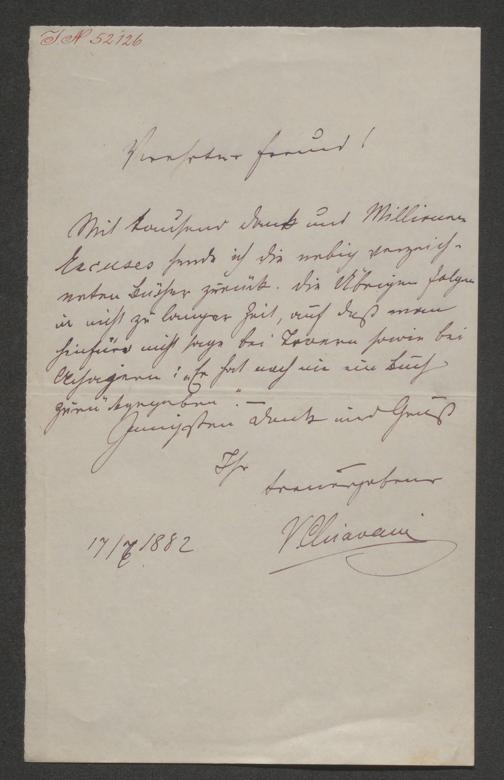 I.N 52126
Verehrter Freund!
Mit tausend Dank und Millionen
Excuses sende ich die nebig verzeich-
neten Bücher zurück. Die Übrigen folgen
in nicht zu langer Zeit, auf daß man
hinfüro nicht sage bei Troern sowie bei
Achajern: "Er hat noch nie ein Buch
zurückgegeben". —
Innigsten Dank und Gruß
Ihr
treuergebener
VChiavacci
17/7 1882